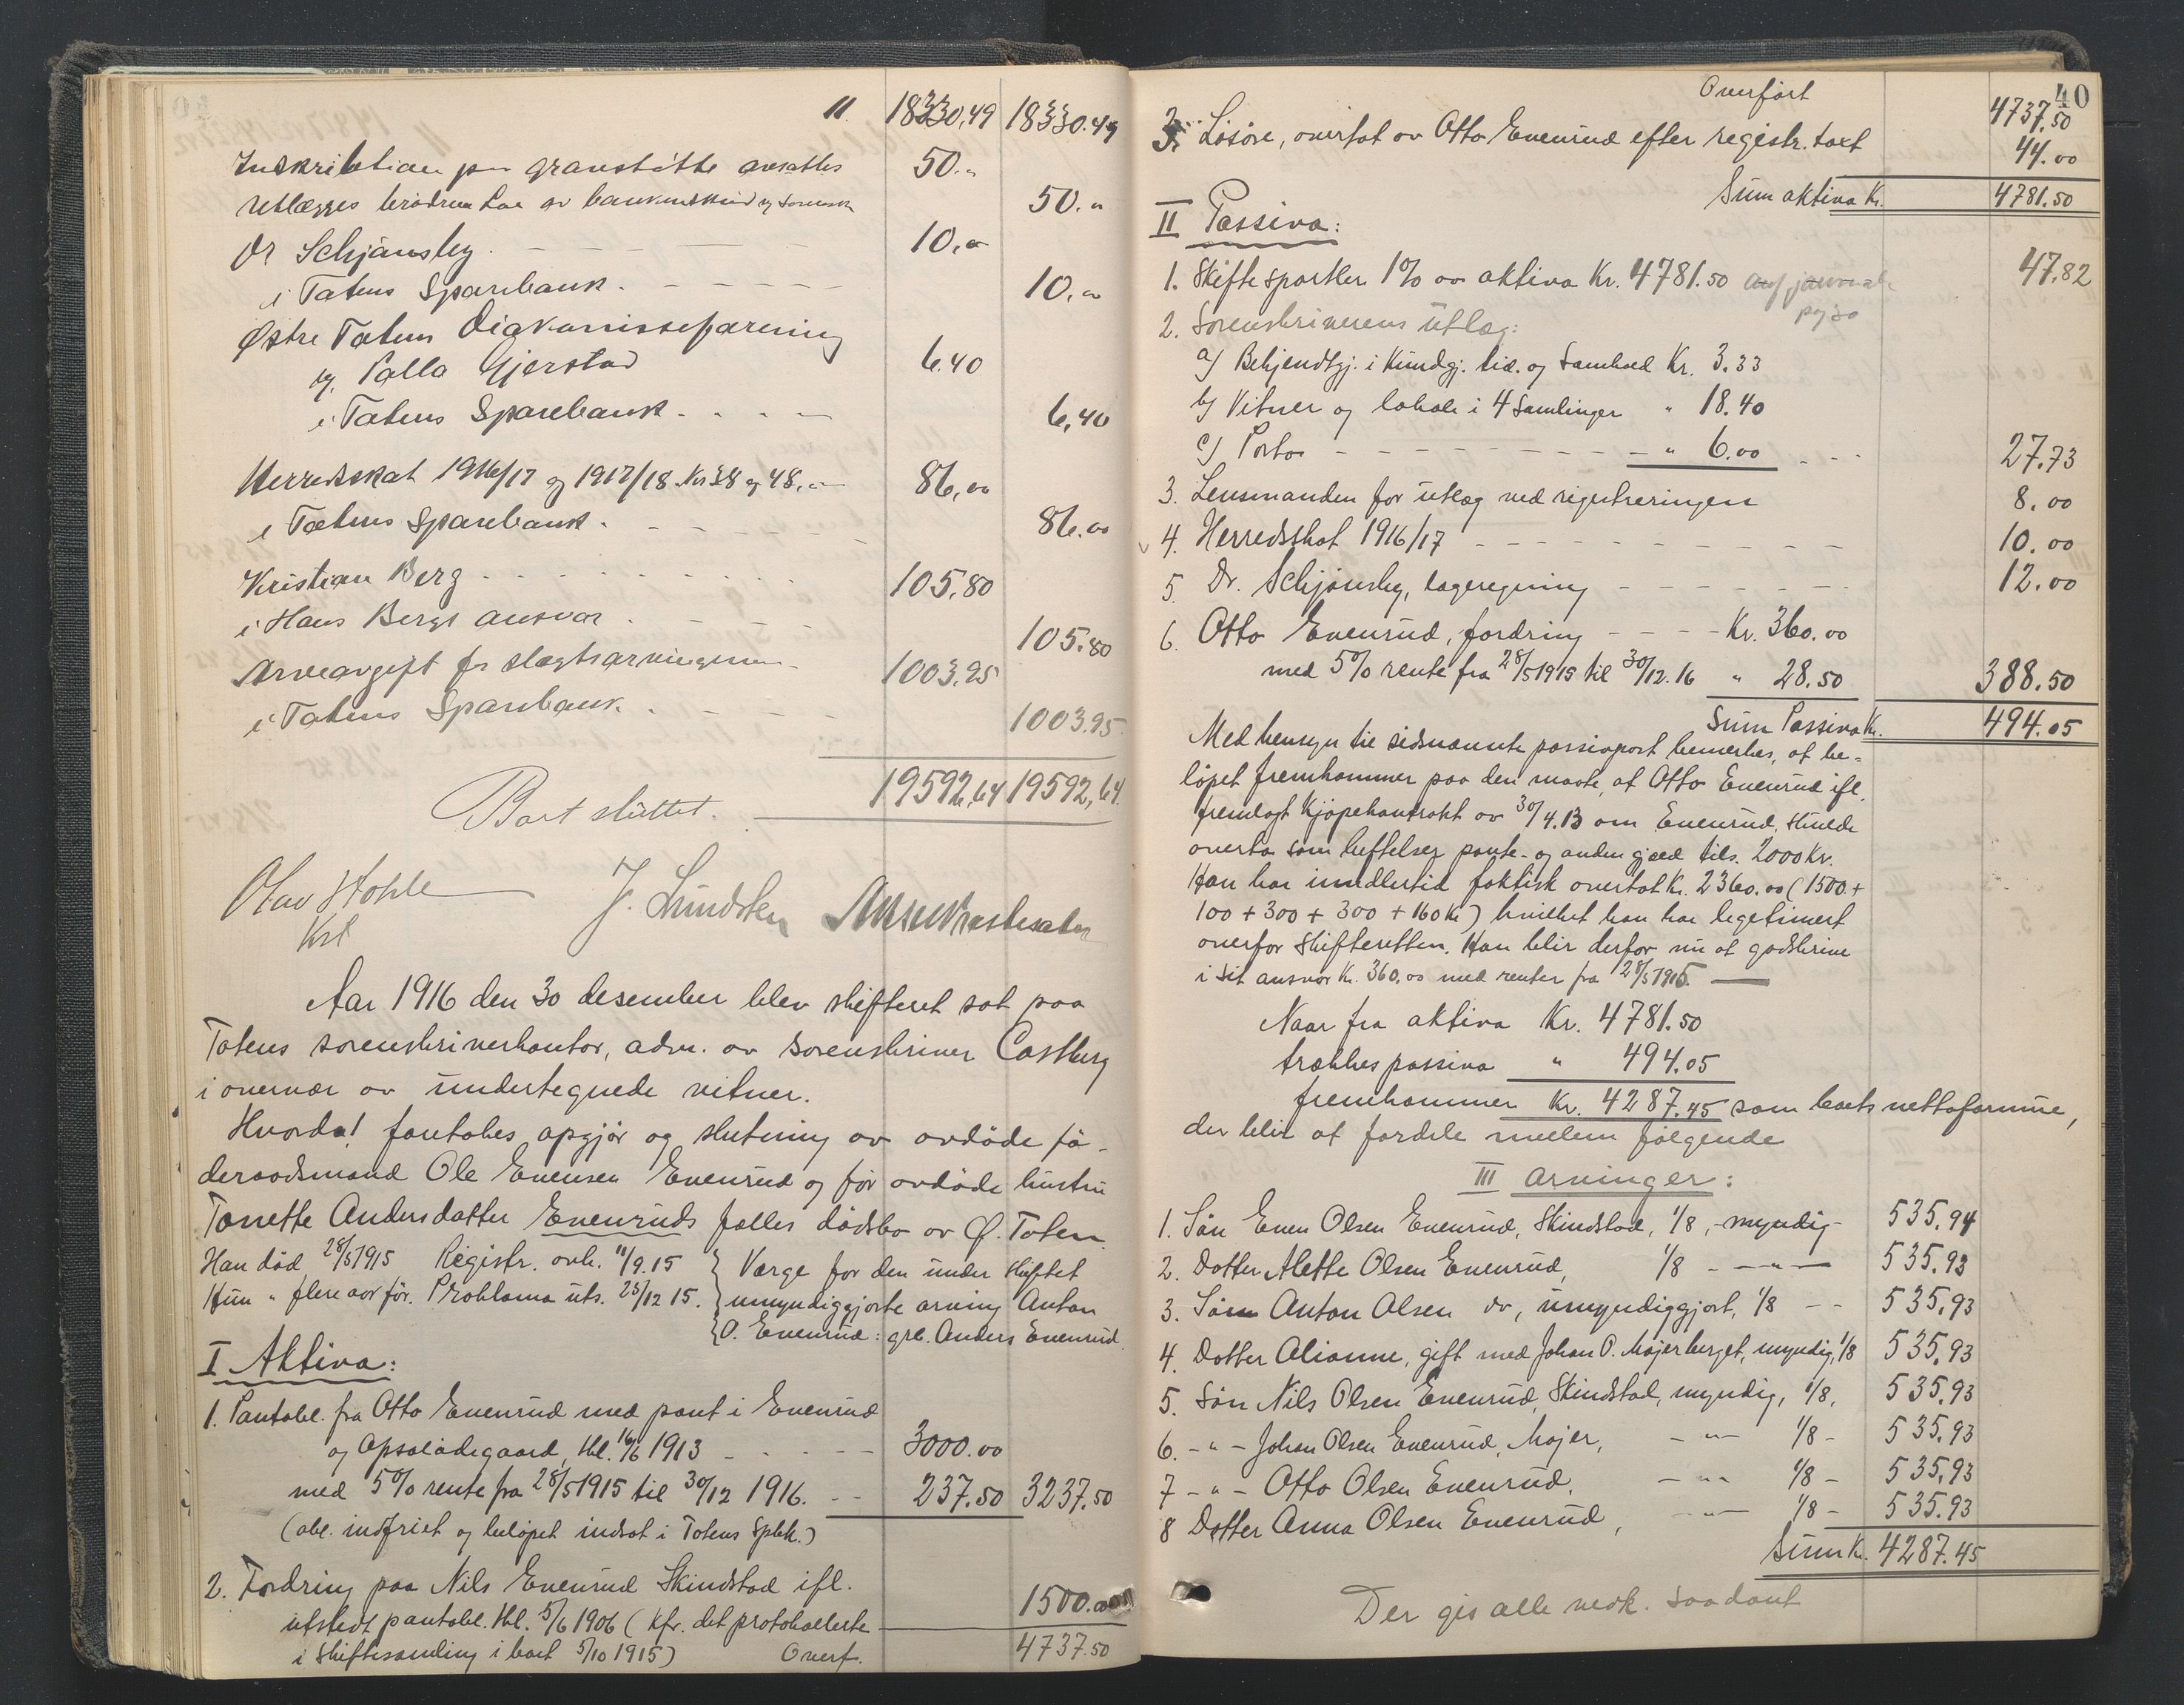 11. 18330,49 18330.49
Inskription paa gravstötte avsattes 50.„
Utlægges brödrene Lae av bankinnskud og Sorensk 50.„
Dr Schjånsby. 10,„
i Totens Sparebank. 10.„
Östre Totens Diakonisseforening
v. Palla Gjerstad 6.40
i Totens Sparebank 6,40
Herredsskat 1916/17 og 1917/18. Kr 38 og 48.- 86,00
i Totens Sparebank. 86.00
Kristian Berg 105,80
i Hans Bergs ansvar 105.80
Arveavgift fr slegtsarvingerne 1003,95
i Totens Sparebank. 1003.95
19592,64 19592,64
Boet sluttet.
Olav Stohle J. Lundsten
Kst
Aar 1916 den 30 desember blev skifteret sat paa
Totens sorenskriverkontor, adm. av sorenskriver Castberg
i overvær av undertegnede vitner.
Hvorda! foretokes opgjör og slutning av avdöde fö-
deraadsmand Ole Evensen Evenrud og för avdöde hustru
Tonette Andersdatter Evenruds felles dödsbo av Ö. Toten.
Han död 28/5 1915 Registr. avh. 11/9.15 } Verge for den under skiftet
Hun „ flere aar för. Proklama uts. 23/12 15. } umyndiggjorte arving Anton
{ O. Evenrud: grb. Anders Evenrud.
I Aktiva:
1. Pantobl. fra Otto Evenrud med pant i Evenrud
og Opsalödegaard, tbl. 16/6 1913 3000.00
med 5% rente fra 28/5 1915 til 30/12 1916. 237.50 3237.50
(obl. indfriet og belöpet indsat i Totens Spbk.)
2. Fordring paa Nils Evenrud Skindstad ifl.
utstedt pantobl. tbl. 5/6 1906 (Kfr. det protokollerte 1500.00
i skiftesamling i boet 5/10 1915) Overf. 4737.50
40
Overfört 4737.50
3. Lösöre, overtat av Otto Evenrud efter registr. takst 44.00
Sum aktiva Kr. 4781.50
II Passiva:
1. Skiftesportler 1% av aktiva Kr. 4781.50 47.82
2. Sorenskriverens utlæg:
a) Bekjendtgj. i Kundgj. tid. og Samhold Kr. 3.33
b) Vitner og lokale i 4 samlinger „ 18.40
c) Porto „ 6.00 27.73
3. Lensmanden for utlæg ved registreringen 8.00
4. Herredsskat 1916/17 10.00
5. Dr. Schjönsby, lægeregning 12.00
6. Otto Evenrud, fordring Kr. 360.00
med 5% rente fra 28/5 1915 til 30/12.16 „ 28.50 388.50
Sum Passiva Kr. 494.05
Med hensyn til sidsnævnte passivpost bemerkes, at be-
löpet fremkommer paa den maate, at Otto Evenrud ifl.
fremlagt kjöpekontrakt av 30/4.13 om Evenrud, skulde
overta som heftelser pante- og anden gjæld tils. 2000 Kr.
Han har imidlertid faktisk overtat Kr. 2360.00 (1500 +
100 + 300 + 300 + 160 Kr) hvilket han har legetimert
overfor skifteretten. Han blir derfor nu at godskrive
i sit ansvar Kr. 360,00 med renter fra 28/5 1915.
Naar fra aktiva Kr. 4781.50
trækkes passiva „ 494.05
fremkommer Kr. 4287.45 som boets nettoformue,
der blir at fordele mellem følgende
III arvinger:
1. Sön Even Olsen Evenrud, Skindstad, 1/8, - myndig - 535,94
2. Datter Alette Olsen Evenrud, 1/8 - „ - 535.93
3. Sön Anton Olsen do, umyndiggjort, 1/8 - - 535,93
4. Datter Olianne, gift med Johan P. Majerberget, myndig, 1/8 535,93
5. Sön Nils Olsen Evenrud, Skindstad, myndig, 1/8, 535,93
6. - „ - Johan Olsen Evenrud, Majer, - „ - 1/8 - 535,93
7 - „ - Otto Olsen Evenrud, - „ - 1/8 - 535,93
8 Datter Anna Olsen Evenrud, - „ - 1/8 - 535.93
Sum Kr. 4287.45
Der gis alle vedk. saadant